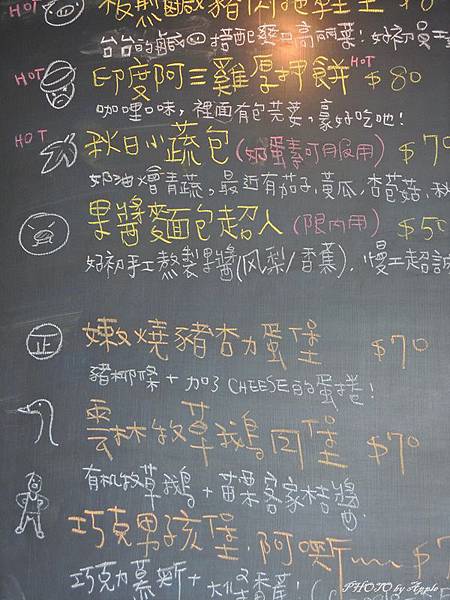 HOT
台台的鹹
HOT 印度阿三雞厚押餅 HOT $80
咖哩口味,裡面有包芫荽,豪好吃地!
HOT 秋日小蔬包(奶蛋素可服用) $70
奶油燴青蔬,最近有茄子、黃瓜、杏苞菇、秋
果醬麵包超人(限內用) $50
好初手工熬製果醬(风梨/香蕉).慢工超誠
正 嫩燒豬杏力蛋堡 $70
豬柳條+加了CHEESE的蛋捲!
雲林牧草鵝回堡 $70
有机牧草鵝+苗栗客家桔醬
巧克男孩堡.阿嘶~~ $7
巧克力慕斯+
PHOTO by Apple